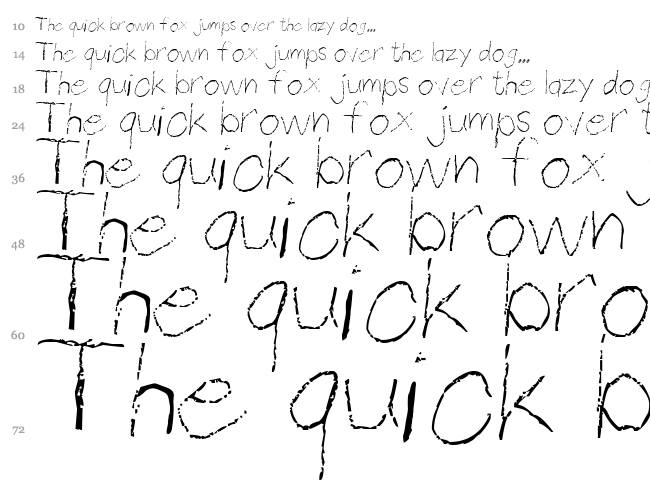 10 The quick brown fox jumps over the lazy dog...
14 The quick brown fox jumps over the lazy dog...
18 The quick brown fox jumps over the lazy dog
24 The quick brown fox jumps over t
36 The quick brown fox
48 The quick brown
60 The quick bro
72 The quick b